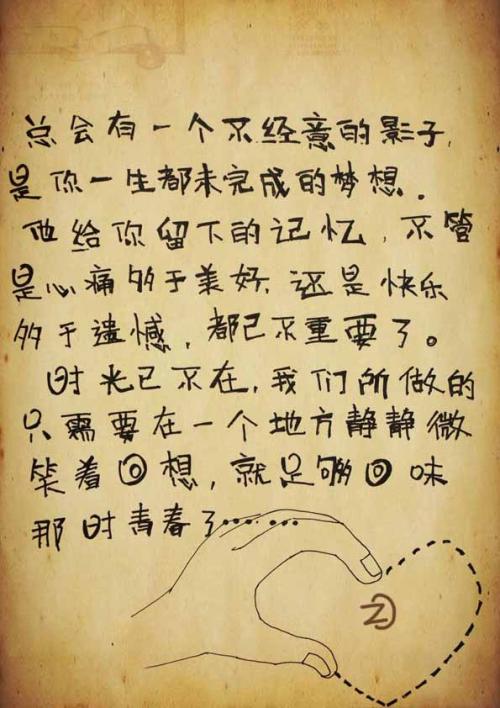 总会有一个不经意的影子,
是你一生都未完成的梦想.
他给你留下的记忆,不管
是心痛多于美好,还是快乐
多于遗憾,都已不重要了。
时光已不在,我们所做的
只需要在一个地方静静微
笑着回想,就足够回味
那时青春了......